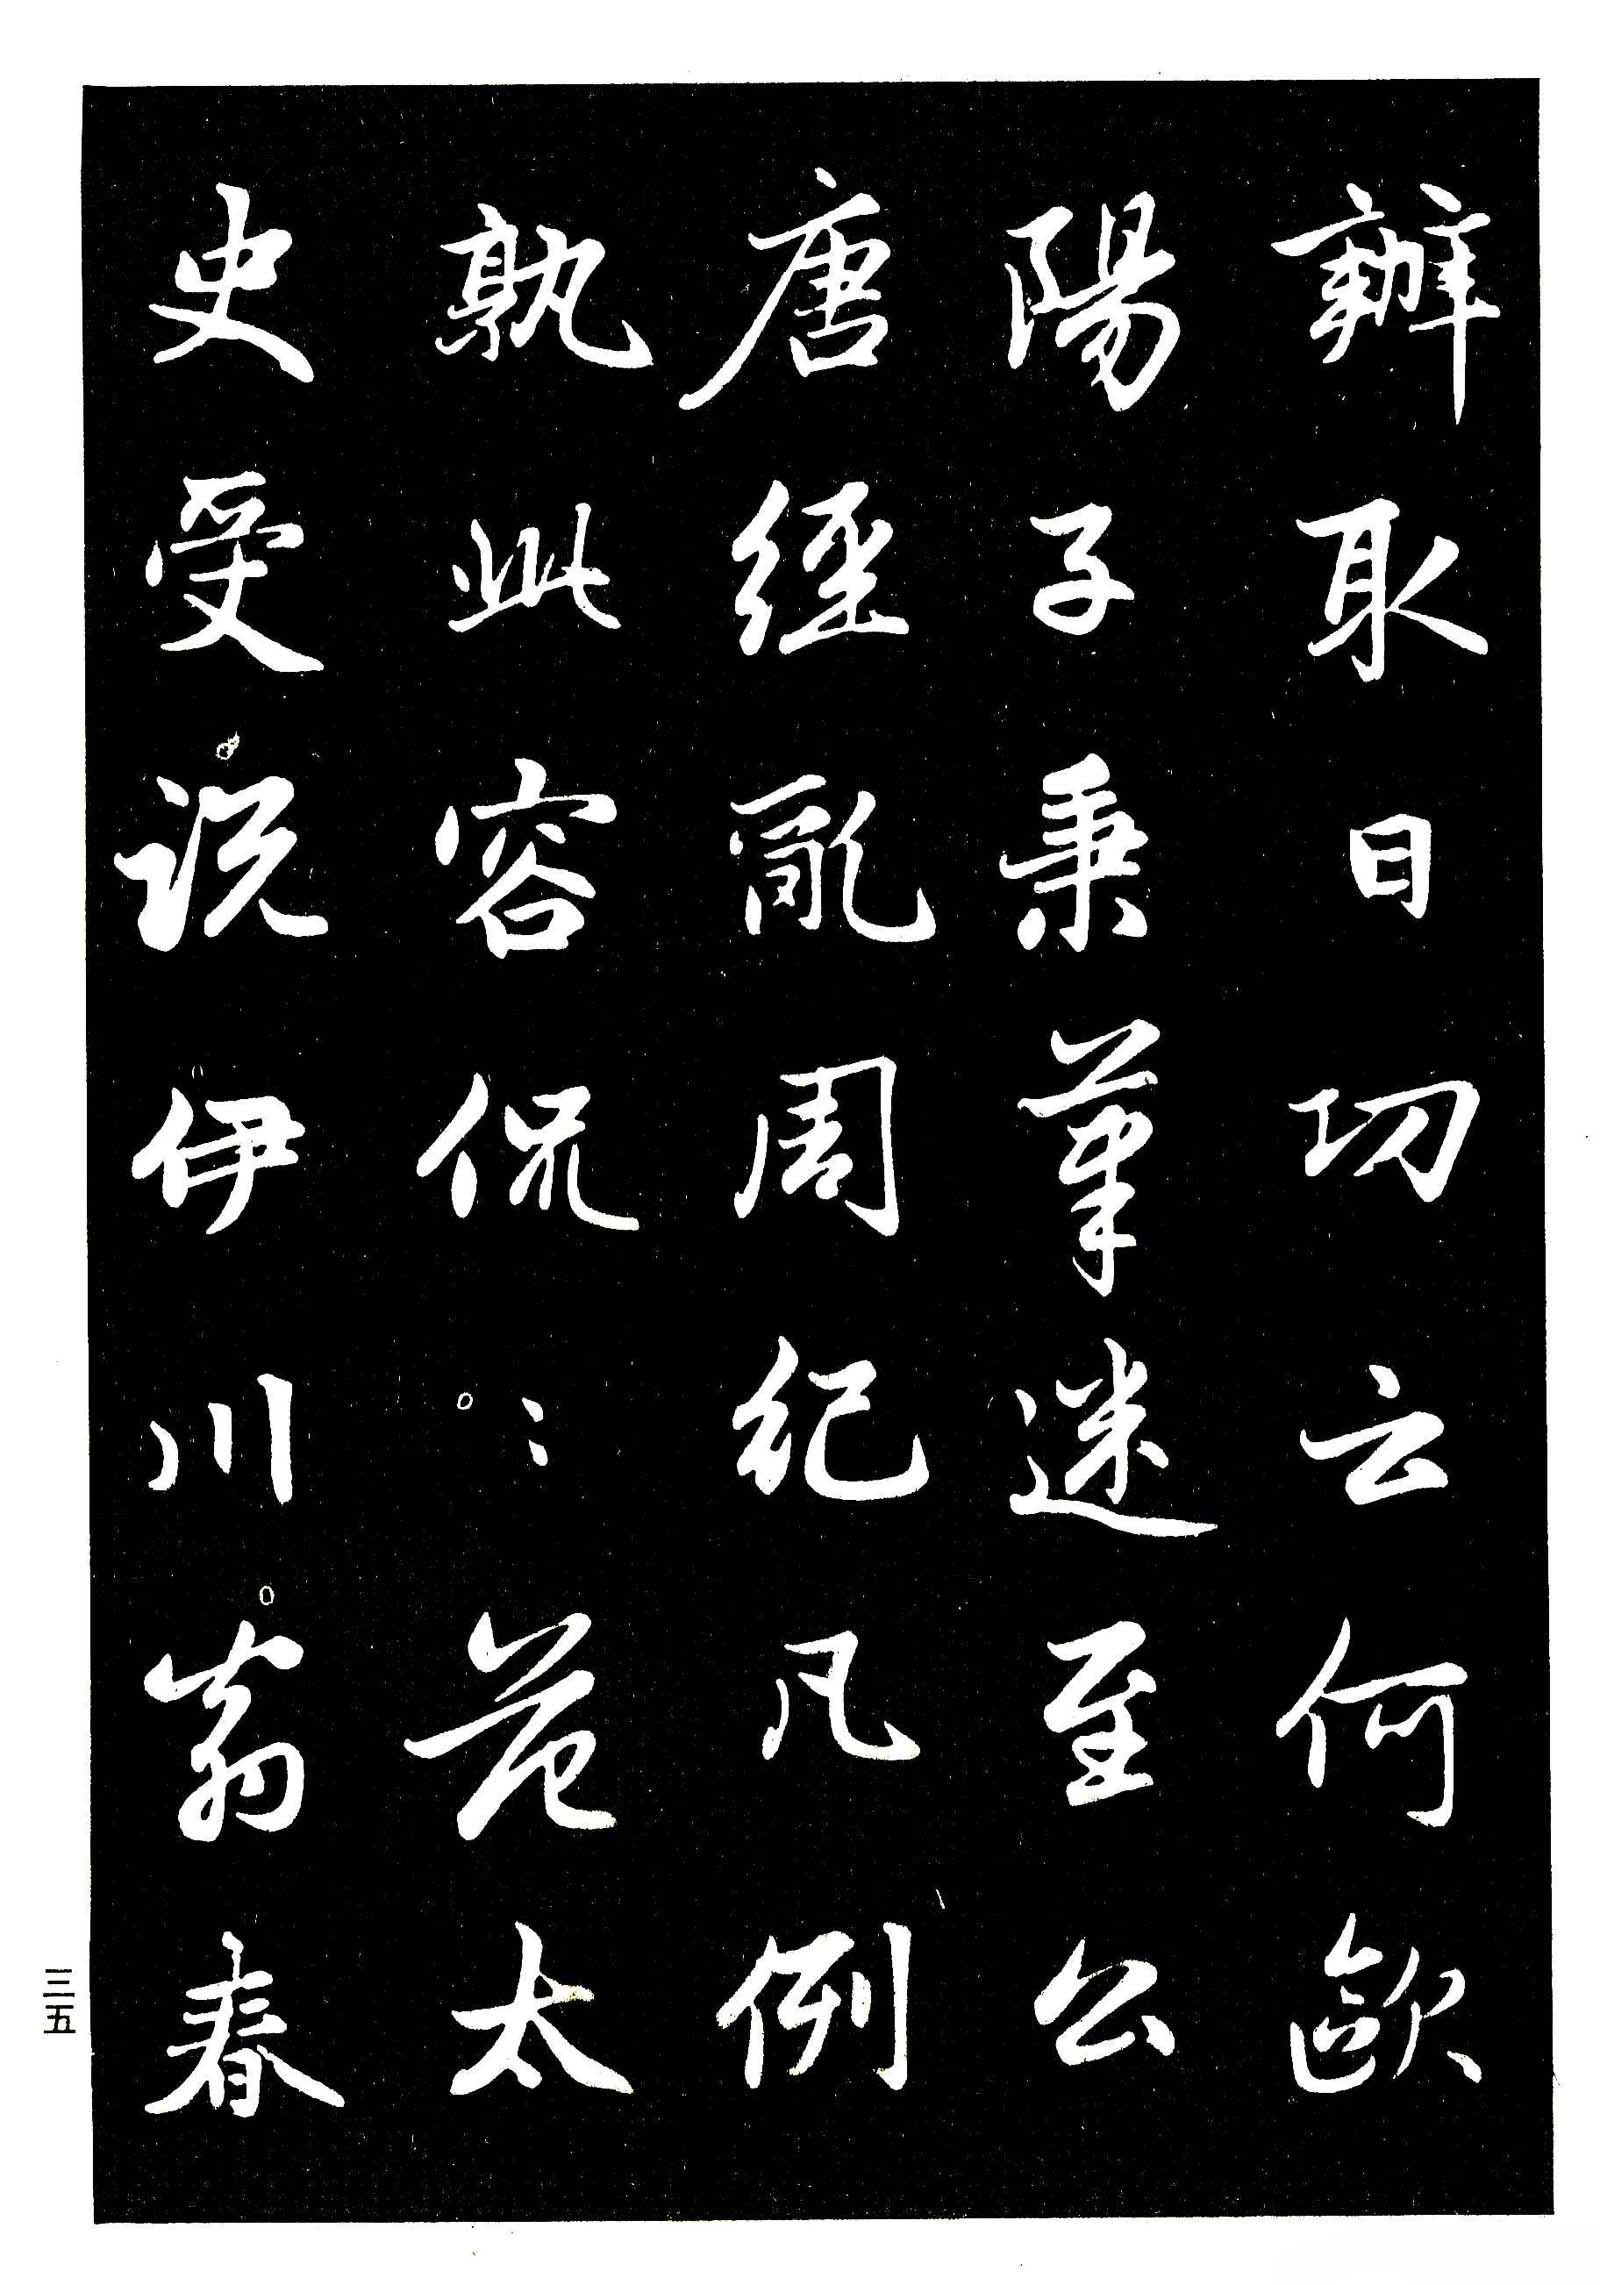 辦取日功云何歐
陽子秉筆迷至公
唐經亂周紀凡例
孰此容侃〻范太
史受說伊川翁春
三五